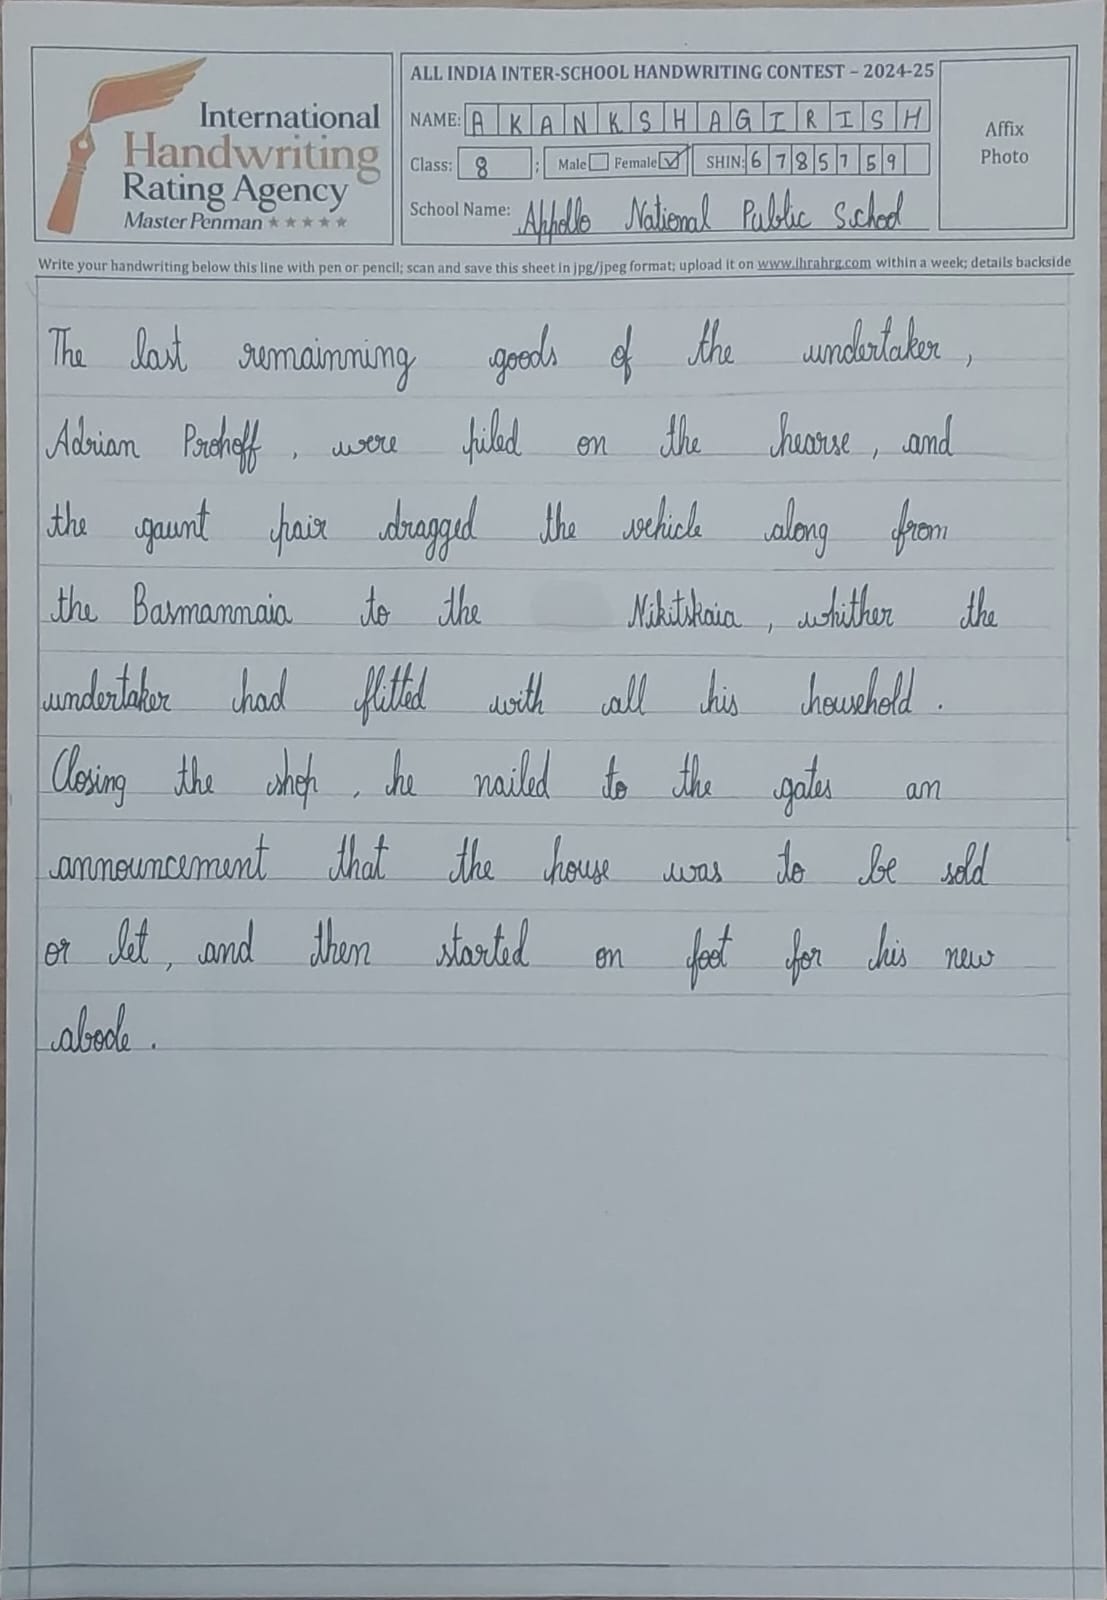 International
Handwriting
Rating Agency
Master Penman ★★★★★
ALL INDIA INTER-SCHOOL HANDWRITING CONTEST – 2024-25
NAME: AKANKSHAGIRISH
Class: 8 : Male Female ✓ SHIN: 6785759
School Name: Appollo National Public School
Affix
Photo
Write your handwriting below this line with pen or pencil; scan and save this sheet in jpg/jpeg format; upload it on www.ihrahrg.com within a week; details backside
The last remainning goods of the undertaker,
Adrian Prohoff, were piled on the hearse, and
the gaunt pair dragged the vehicle along from
the Basmannaia to the Nikitskaia, whither the
undertaker had flitted with all his household.
Closing the shop, he nailed to the gates an
announcement that the house was to be sold
or let, and then started on foot for his new
abode.